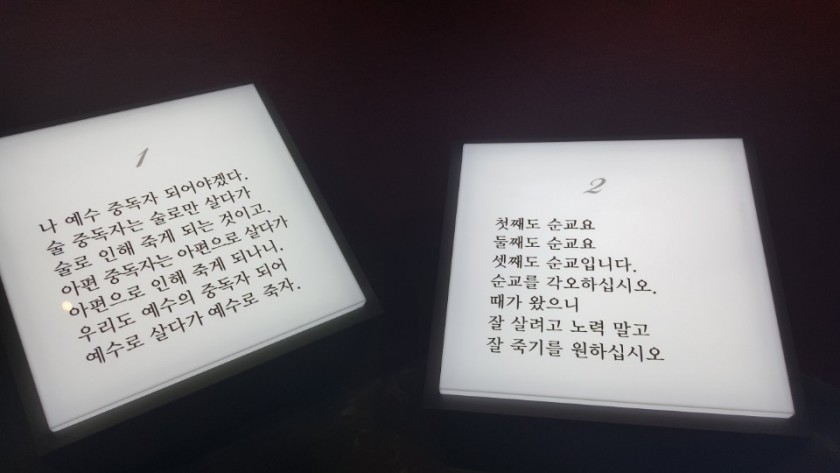 1
나 예수 중독자 되어야겠다.
술 중독자는 술로만 살다가
술로 인해 죽게 되는 것이고,
아편 중독자는 아편으로 살다가
아편으로 인해 죽게 되나니.
우리도 예수의 중독자 되어
예수로 살다가 예수로 죽자.
2
첫째도 순교요
둘째도 순교요
셋째도 순교입니다.
순교를 각오하십시오.
때가 왔으니
잘 살려고 노력 말고
잘 죽기를 원하십시오